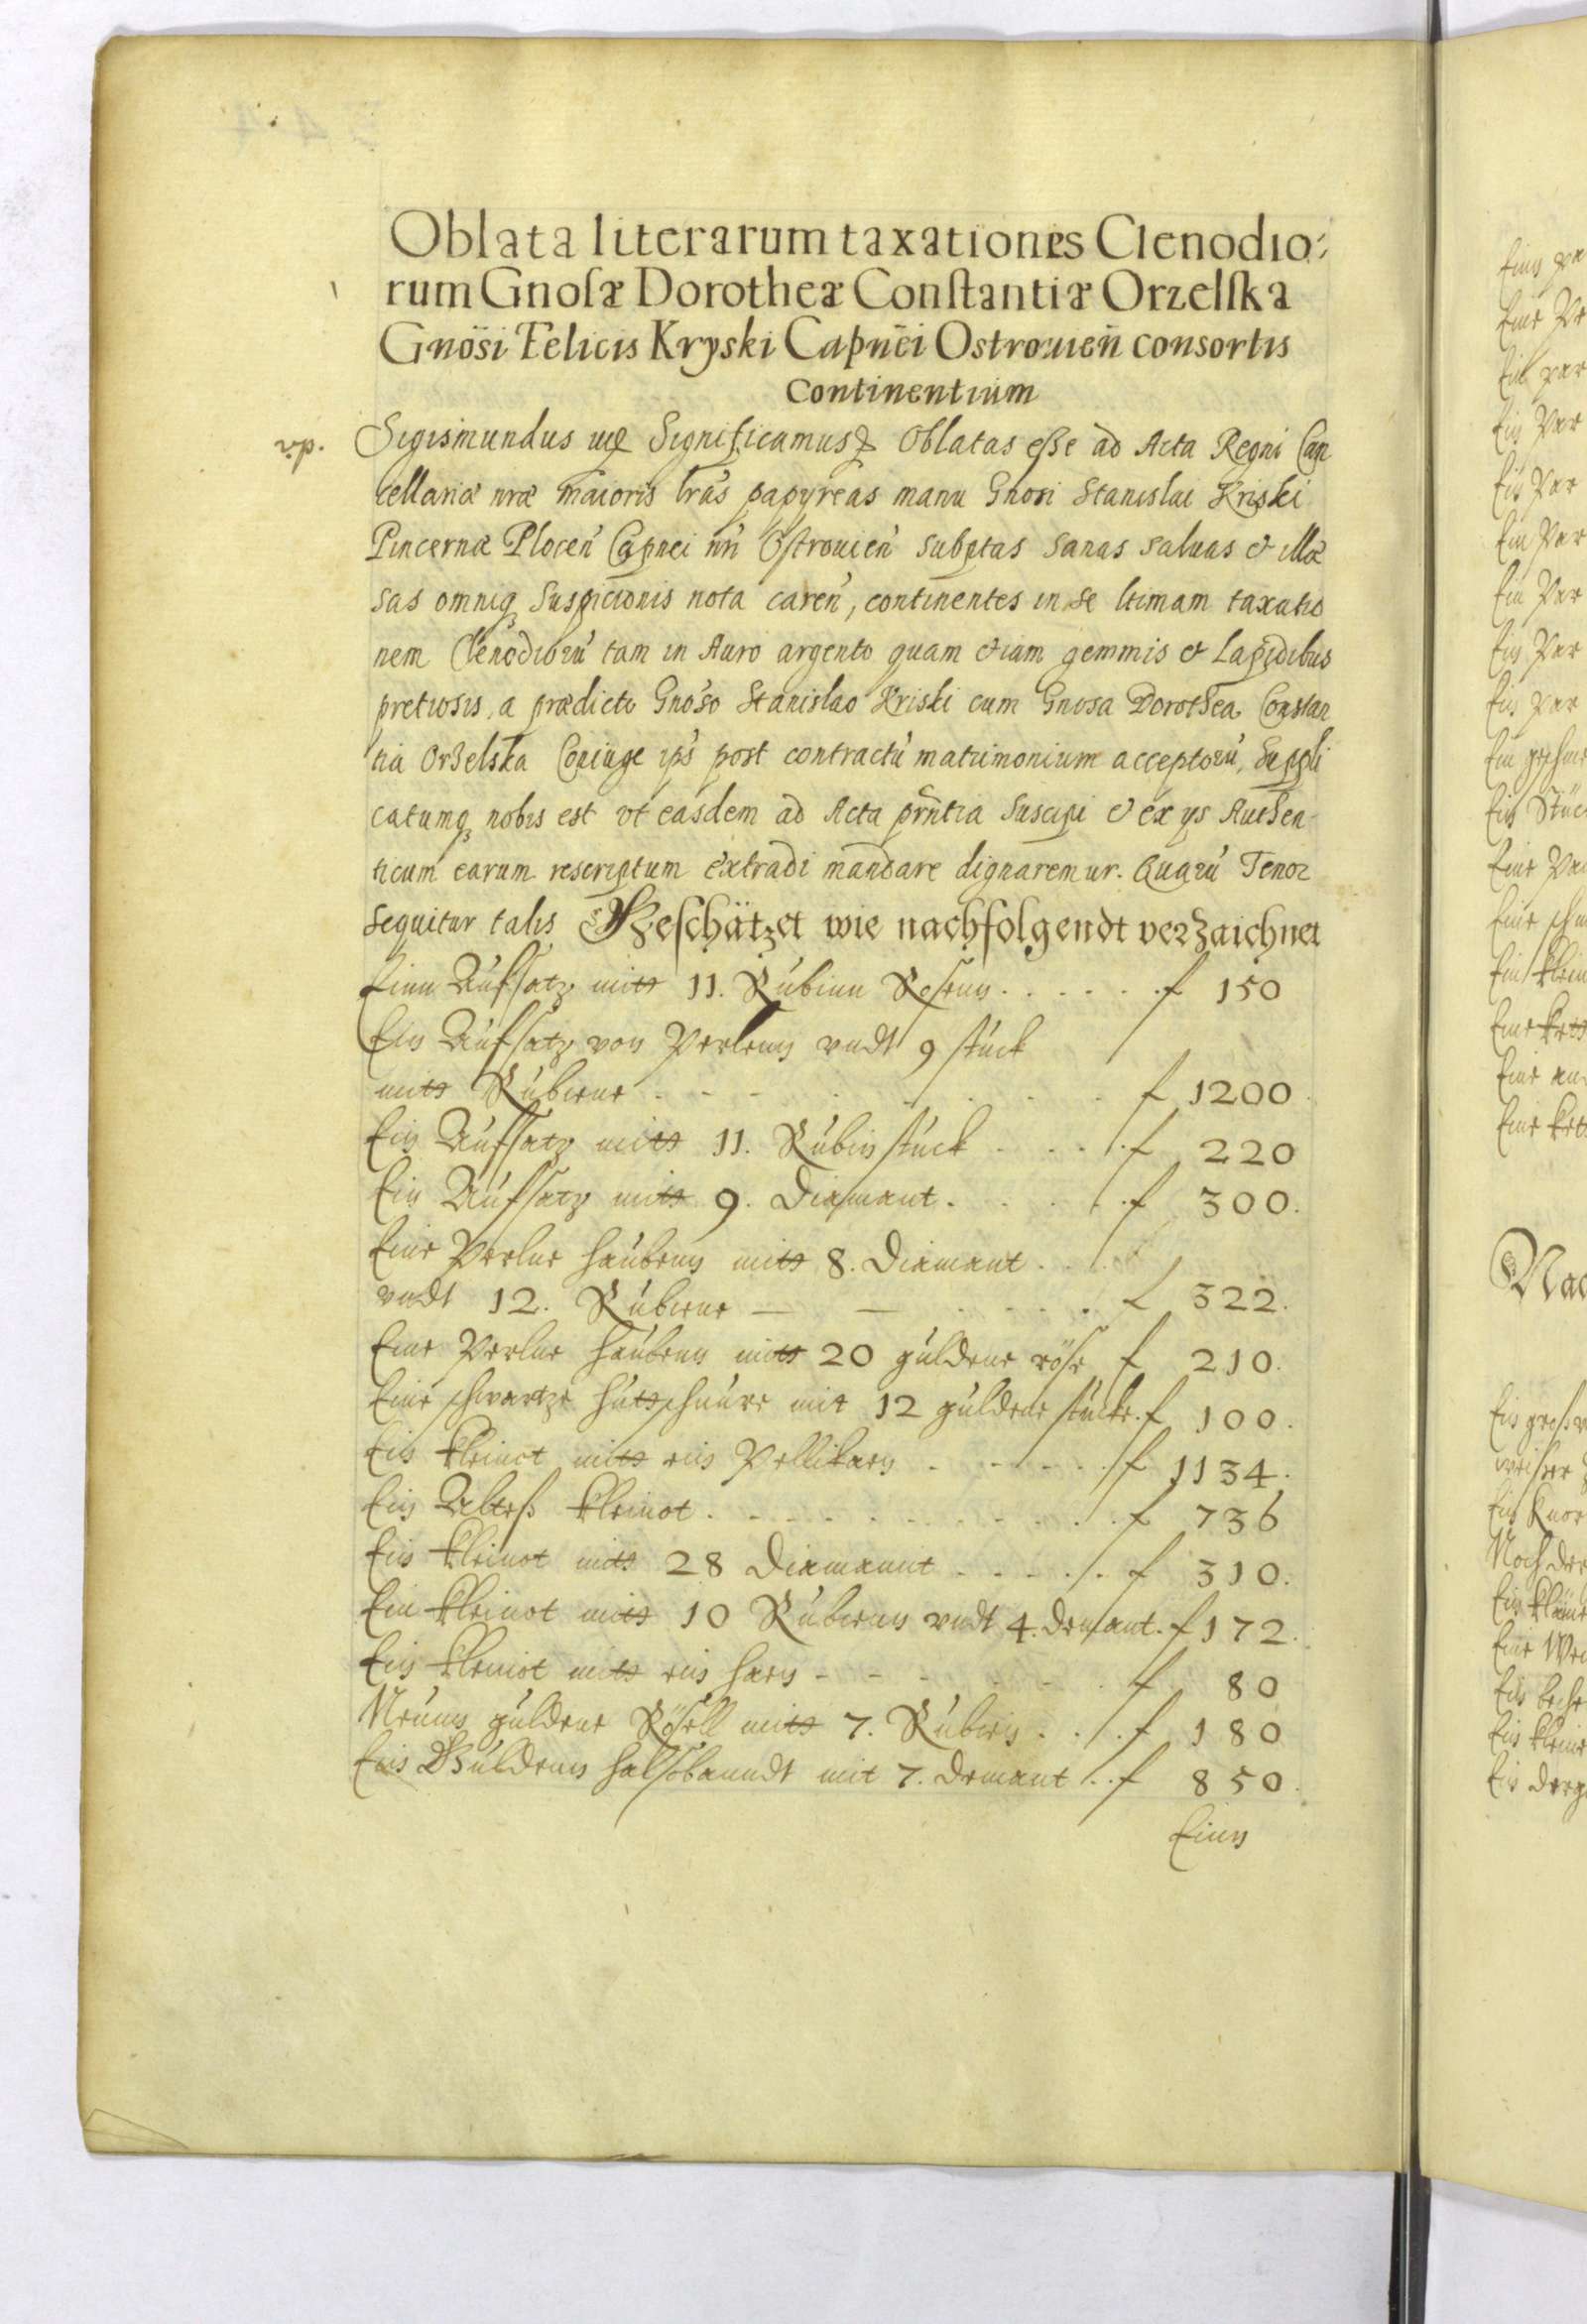 Oblata literarum taxationes Clenodio:
rum Gnosæ Dorotheæ Constantiæ Orzelska
Gnosi Felicis Kryski Capnei Ostrouien consortis
Continentium
Sigismundus Significamus Oblatas esse ad Acta Regni Can
cellariæ nræ maioris lras papyreas manu Gnosi Stanislai Kriski
Pincernæ Plocen Capnei nri Ostrouien subptas sanas saluas et illæ
sas omniq suspicionis nota caren, continentes in se ltimam taxatio
nem Clenodioru tam in Auro argento quam etiam gemmis et Lapidibus
pretiosis, a prædicto Gnoso Stanislao Kriski cum Gnosa Dorothea Constan
tia Orzelska Coniuge ips post contractu matrimonium acceptoru, Suppli
catumq nobis est vt easdem ad Acta prntia suscipi et ex ys Authen-
ticum earum rescriptum extradi mandare dignaremur. Quaru Tenor
sequitur talis Geschätzet wie nachfolgendt verzaichnet
Einn Aufsatz mitt 11. Rubinn Rosenn . . . . . . f 150
Ein Aufsatz von Perlenn vndt 9 stuck
mitt Rubinne . . . . . . . . f 1200
Ein Aufsatz mitt 11. Rubin stuck . . . . f 220
Ein Aufsatz mitt 9. Diamant . . . . . f 300.
Eine Perlne haubenn mitt 8. Diamant . . .
vndt 12. Rubinne — — . . . . . f 322.
Eine Perlne haubenn mitt 20 guldene röse f 210.
Eine schwartze hutschnure mit 12 guldene stucke. f 100.
Ein kleinot mitt ein Pellikann . . . . . f 1134.
Ein Altess kleinot . . . . . . . . . . . f 736
Ein kleinot mitt 28 Diamannt . . . . . f 310.
Ein kleinot mitt 10 Rubinnn vndt 4. demant. f 172.
Ein kleinot mitt ein . . . . . . f 80
Neunn guldene Rösell mitt 7. Rubin . . . f 180
Ein Guldenn halssbanndt mit 7. demant . . f 850.
Einn